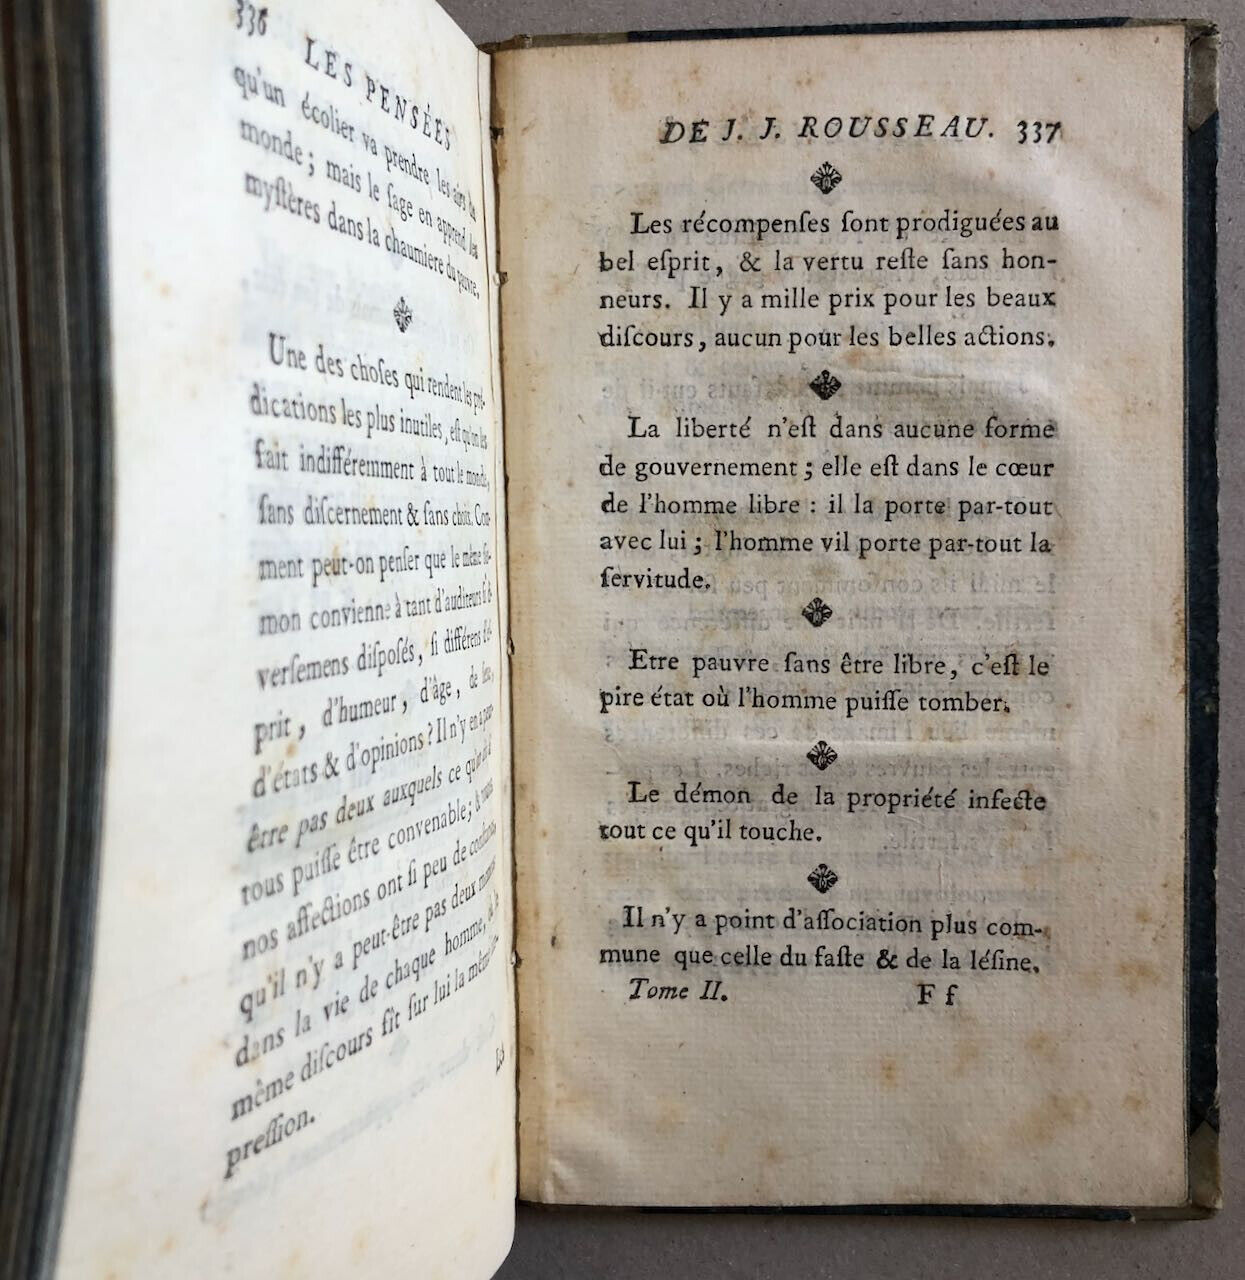 336
LES PENSÉES
qu'un écolier va prendre les airs du
monde; mais le ſage en apprend les
myſtères dans la chaumiere du pauvre.
Une des choſes qui rendent les pré-
dications les plus inutiles, eſt qu'on les
fait indifféremment à tout le monde,
ſans diſcernement & ſans choix. Com-
ment peut-on penſer que le même ſer-
mon convienne à tant d'auditeurs ſi di-
verſemens diſpoſés, ſi différens d'eſ-
prit, d'humeur, d'âge, de ſexe,
d'états & d'opinions? Il n'y en a peut-
être pas deux auxquels ce qu'on dit à
tous puiſſe être convenable; & toutes
nos affections ont ſi peu de conſtance,
qu'il n'y a peut-être pas deux momens
dans la vie de chaque homme, où le
même diſcours fît ſur lui la même im-
preſſion.
Les
DE J. J. ROUSSEAU. 337
Les récompenſes ſont prodiguées au
bel eſprit, & la vertu reſte ſans hon-
neurs. Il y a mille prix pour les beaux
diſcours, aucun pour les belles actions.
La liberté n'eſt dans aucune forme
de gouvernement; elle eſt dans le cœur
de l'homme libre : il la porte par-tout
avec lui; l'homme vil porte par-tout la
ſervitude.
Etre pauvre ſans être libre, c'eſt le
pire état où l'homme puiſſe tomber.
Le démon de la propriété infecte
tout ce qu'il touche.
Il n'y a point d'aſſociation plus com-
mune que celle du faſte & de la léſine.
Tome II. F f